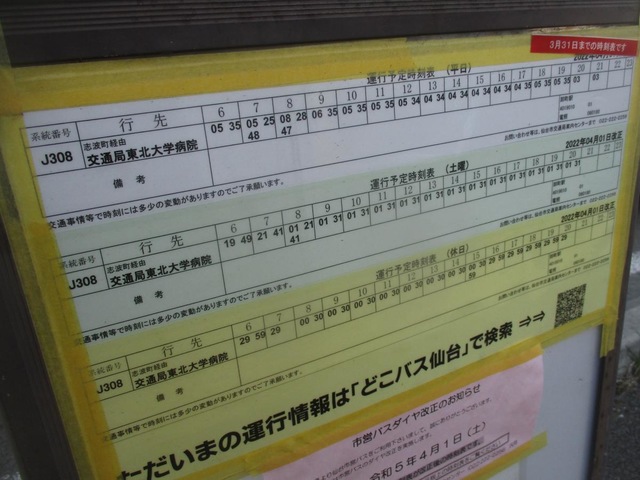 3月31日までの時刻表です
運行予定時刻表 (平日)
系統番号 行先 6 7 8 9 10 11 12 13 14 15 16 17 18 19 20 21 22 23
J308 志波町経由 交通局東北大学病院
05 35 05 25 08 28 06 35 05 35 05 35 05 35 05 34 04 34 04 34 04 34 04 34 04 35 05 35 05 35 03 03
48 47
備考
交通事情等で時刻には多少の変動がありますのでご了承願います。
2022年04月01日改正
運行予定時刻表 (土曜)
系統番号 行先 6 7 8 9 10 11 12 13 14 15 16 17 18 19 20 21 22
J308 志波町経由 交通局東北大学病院
19 49 21 41 01 21 01 31 01 31 01 31 01 31 01 31 01 31 01 31 01 31 01 31 01 31 01 31 01 31
41
備考
交通事情等で時刻には多少の変動がありますのでご了承願います。
2022年04月01日改正
運行予定時刻表 (休日)
系統番号 行先 6 7 8 9 10 11 12 13 14 15 16 17 18 19 20 21 22
J308 志波町経由 交通局東北大学病院
29 59 29 00 30 00 30 00 30 00 30 00 30 00 30 00 30 00 30 00 29 29 59 29 59 29 59 29
59
備考
交通事情等で時刻には多少の変動がありますのでご了承願います。
ただいまの運行情報は「どこバス仙台」で検索 ⇒⇒
市営バスダイヤ改正のお知らせ
令和5年4月1日(土)